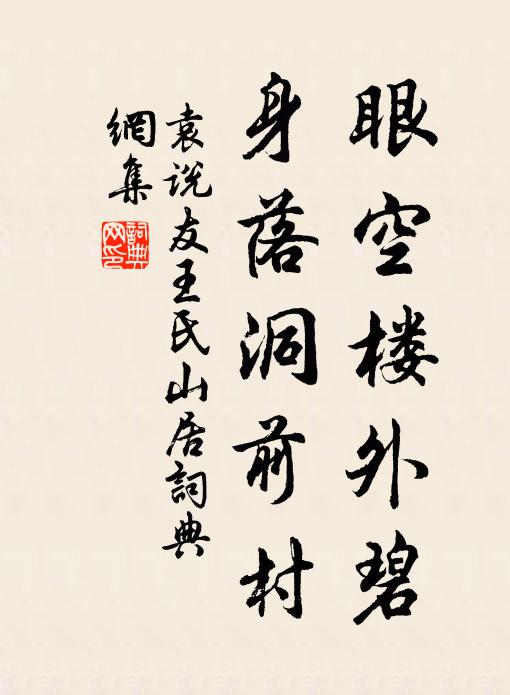 眼空楼外碧
身落洞前村
袁说友王氏山居詞典
網集
詞典
网印